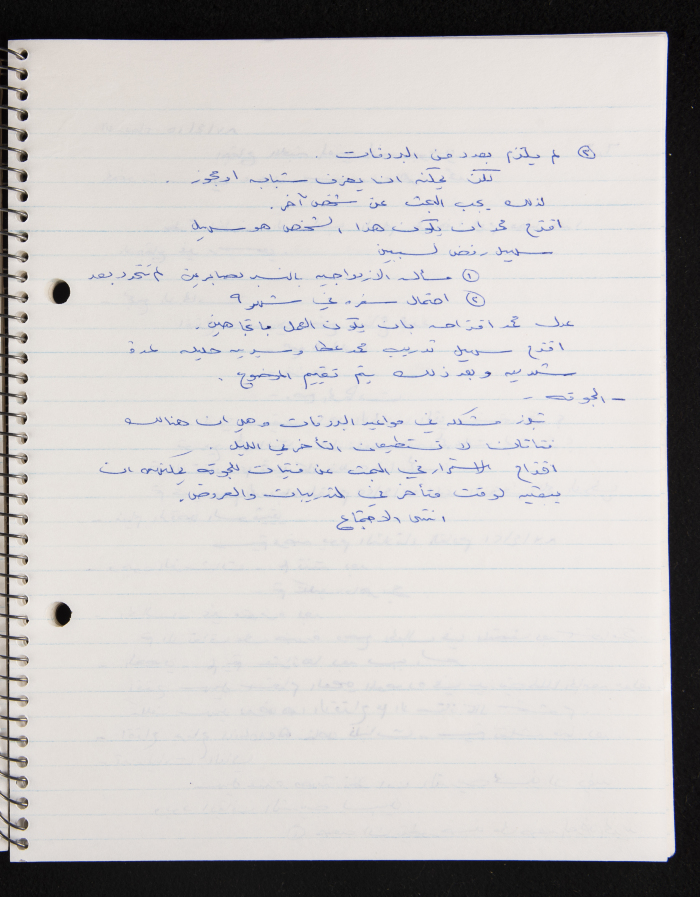 ③ لم يلتزم بعدد من البروفات.
لكن يمكنه ان يعزف شبابه او مجوز.
لذلك يجب البحث عن شخص آخر.
اقترح محمد ان يكون هذا الشخص هو سهيل
سهيل رفض لسببين
① مسألة الازدواجيه بالنسبه لصابرين لم تتحدد بعد
② احتمال سفره في شهر ٩
عدل محمد اقتراحه بان يكون العمل باتجاهين.
اقترح سهيل تدريب محمد عطا وسيريه حليله لمدة
شهرين وبعد ذلك يتم تقييم الموضوع.
- الجوقه -
تبرز مشكله في مواعيد البروفات وهي ان هنالك
فتاتان لا تستطيعان التأخر في الليل.
اقتراح الاستمرار في البحث عن فتيات للجوقه يمكنهن ان
يبقين لوقت متأخر في التدريبات والعروض.
انتهى الاجتماع